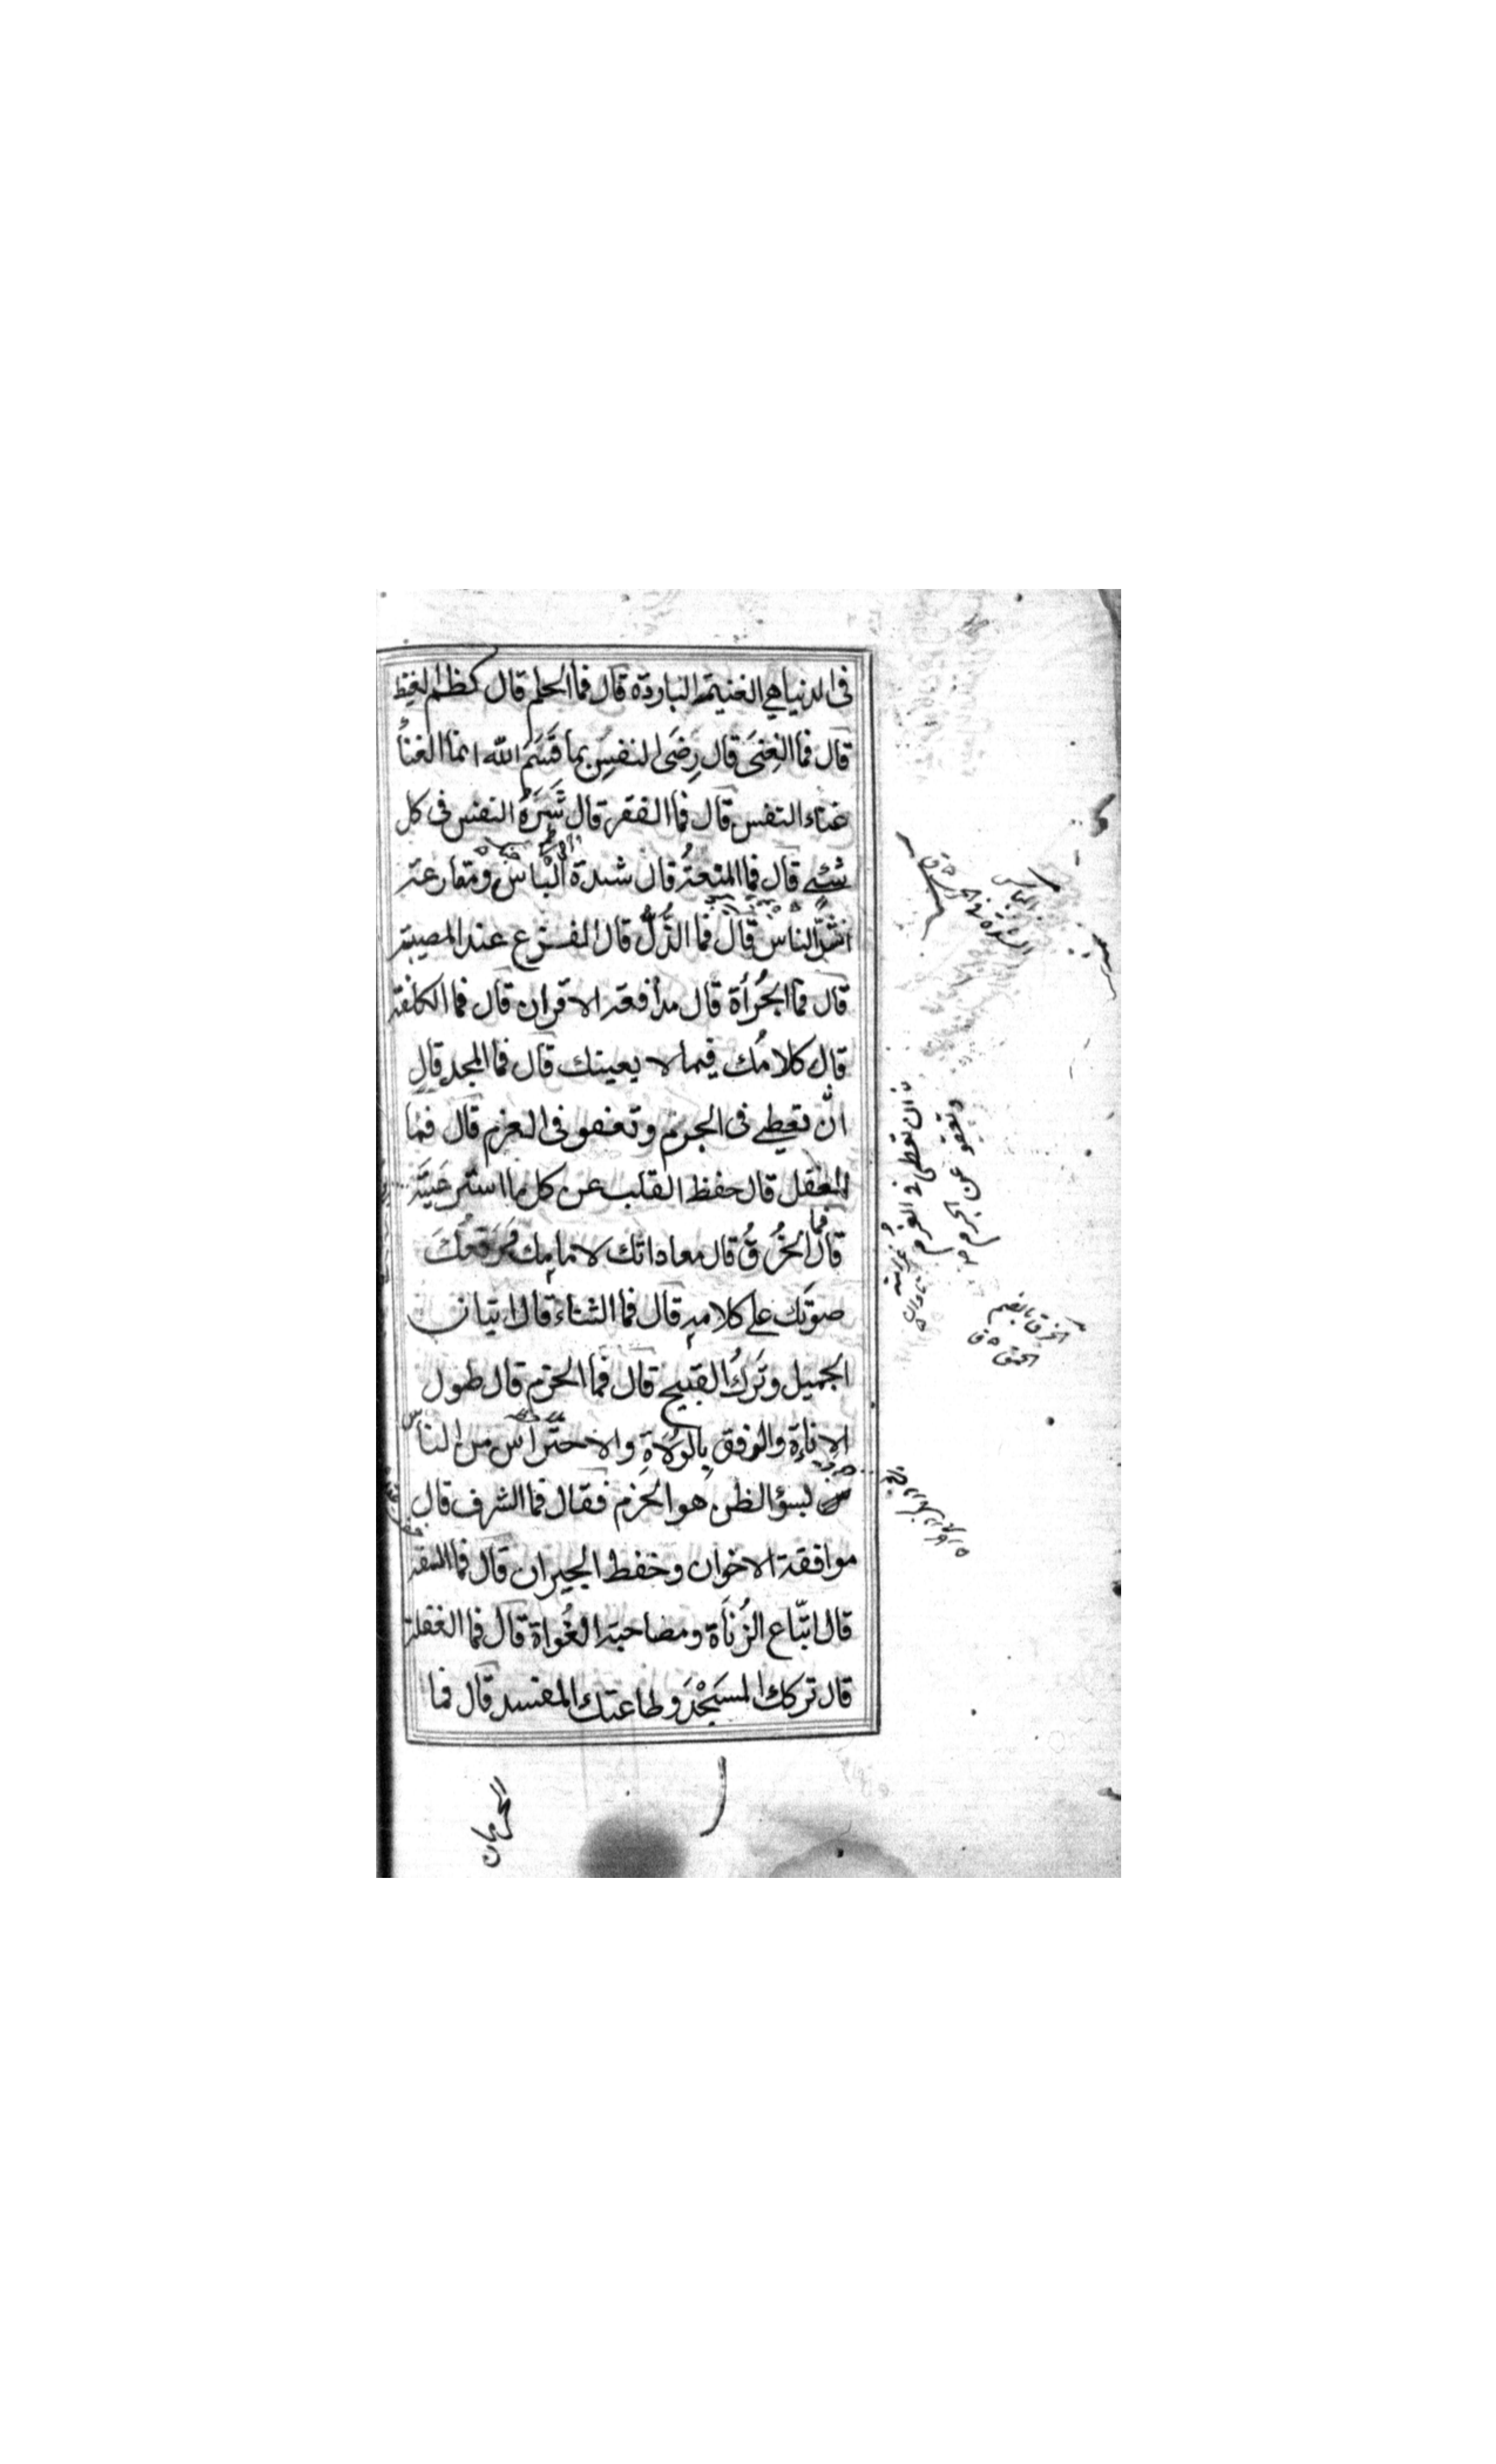 فى الدنيا هي الغنيمة الباردة قال فما الحلم قال كظم الغيظ
قال فما الغِنىَ قال رِضَى النفسِ بما قَسَمَ الله انما الغناً
غناء النفس قال فما الفقر قال شَرَهُ النفس فى كل
شئٍ قال فما المنعةُ قال شدة البأس ومقارعة
اشدّ الناس قال فما الذُّلُّ قال المفزع عند المصيبة
قال فما الجُرأة قال مدافعة الاقران قال فما الكلفة
قال كلامُك فيما لا يعينك قال فما المجد قال
انّ تعطي فى الجرم وتعفو فى العزم قال فما
العقل قال حفظ القلب عن كل ما استرعيتَه
قال فما الخُرقُ قال معاداتك لامامِك
صوتَك على كلامهِ قال فما الثناء قال اتيان
الجميل وتَركُ القبيح قال فما الحزم قال طول
الاناءة والرفق بِالوُلاةِ والاحتراس من الناس
بسؤ الظن هو الحزم فقال فما الشرف قال
موافقة الاخوان وحفظ الجيران قال فما السفه
قال اتبّاع الزُناَة ومصاحبة الغُواة قال فما الغفلة
قال تركك المسَجْدَ وطاعتك المفسد قال فما
الحرمان
ان تعطى فى الغرم
وتعفو عن الجرم
الخرق بالضم
الحمق ق